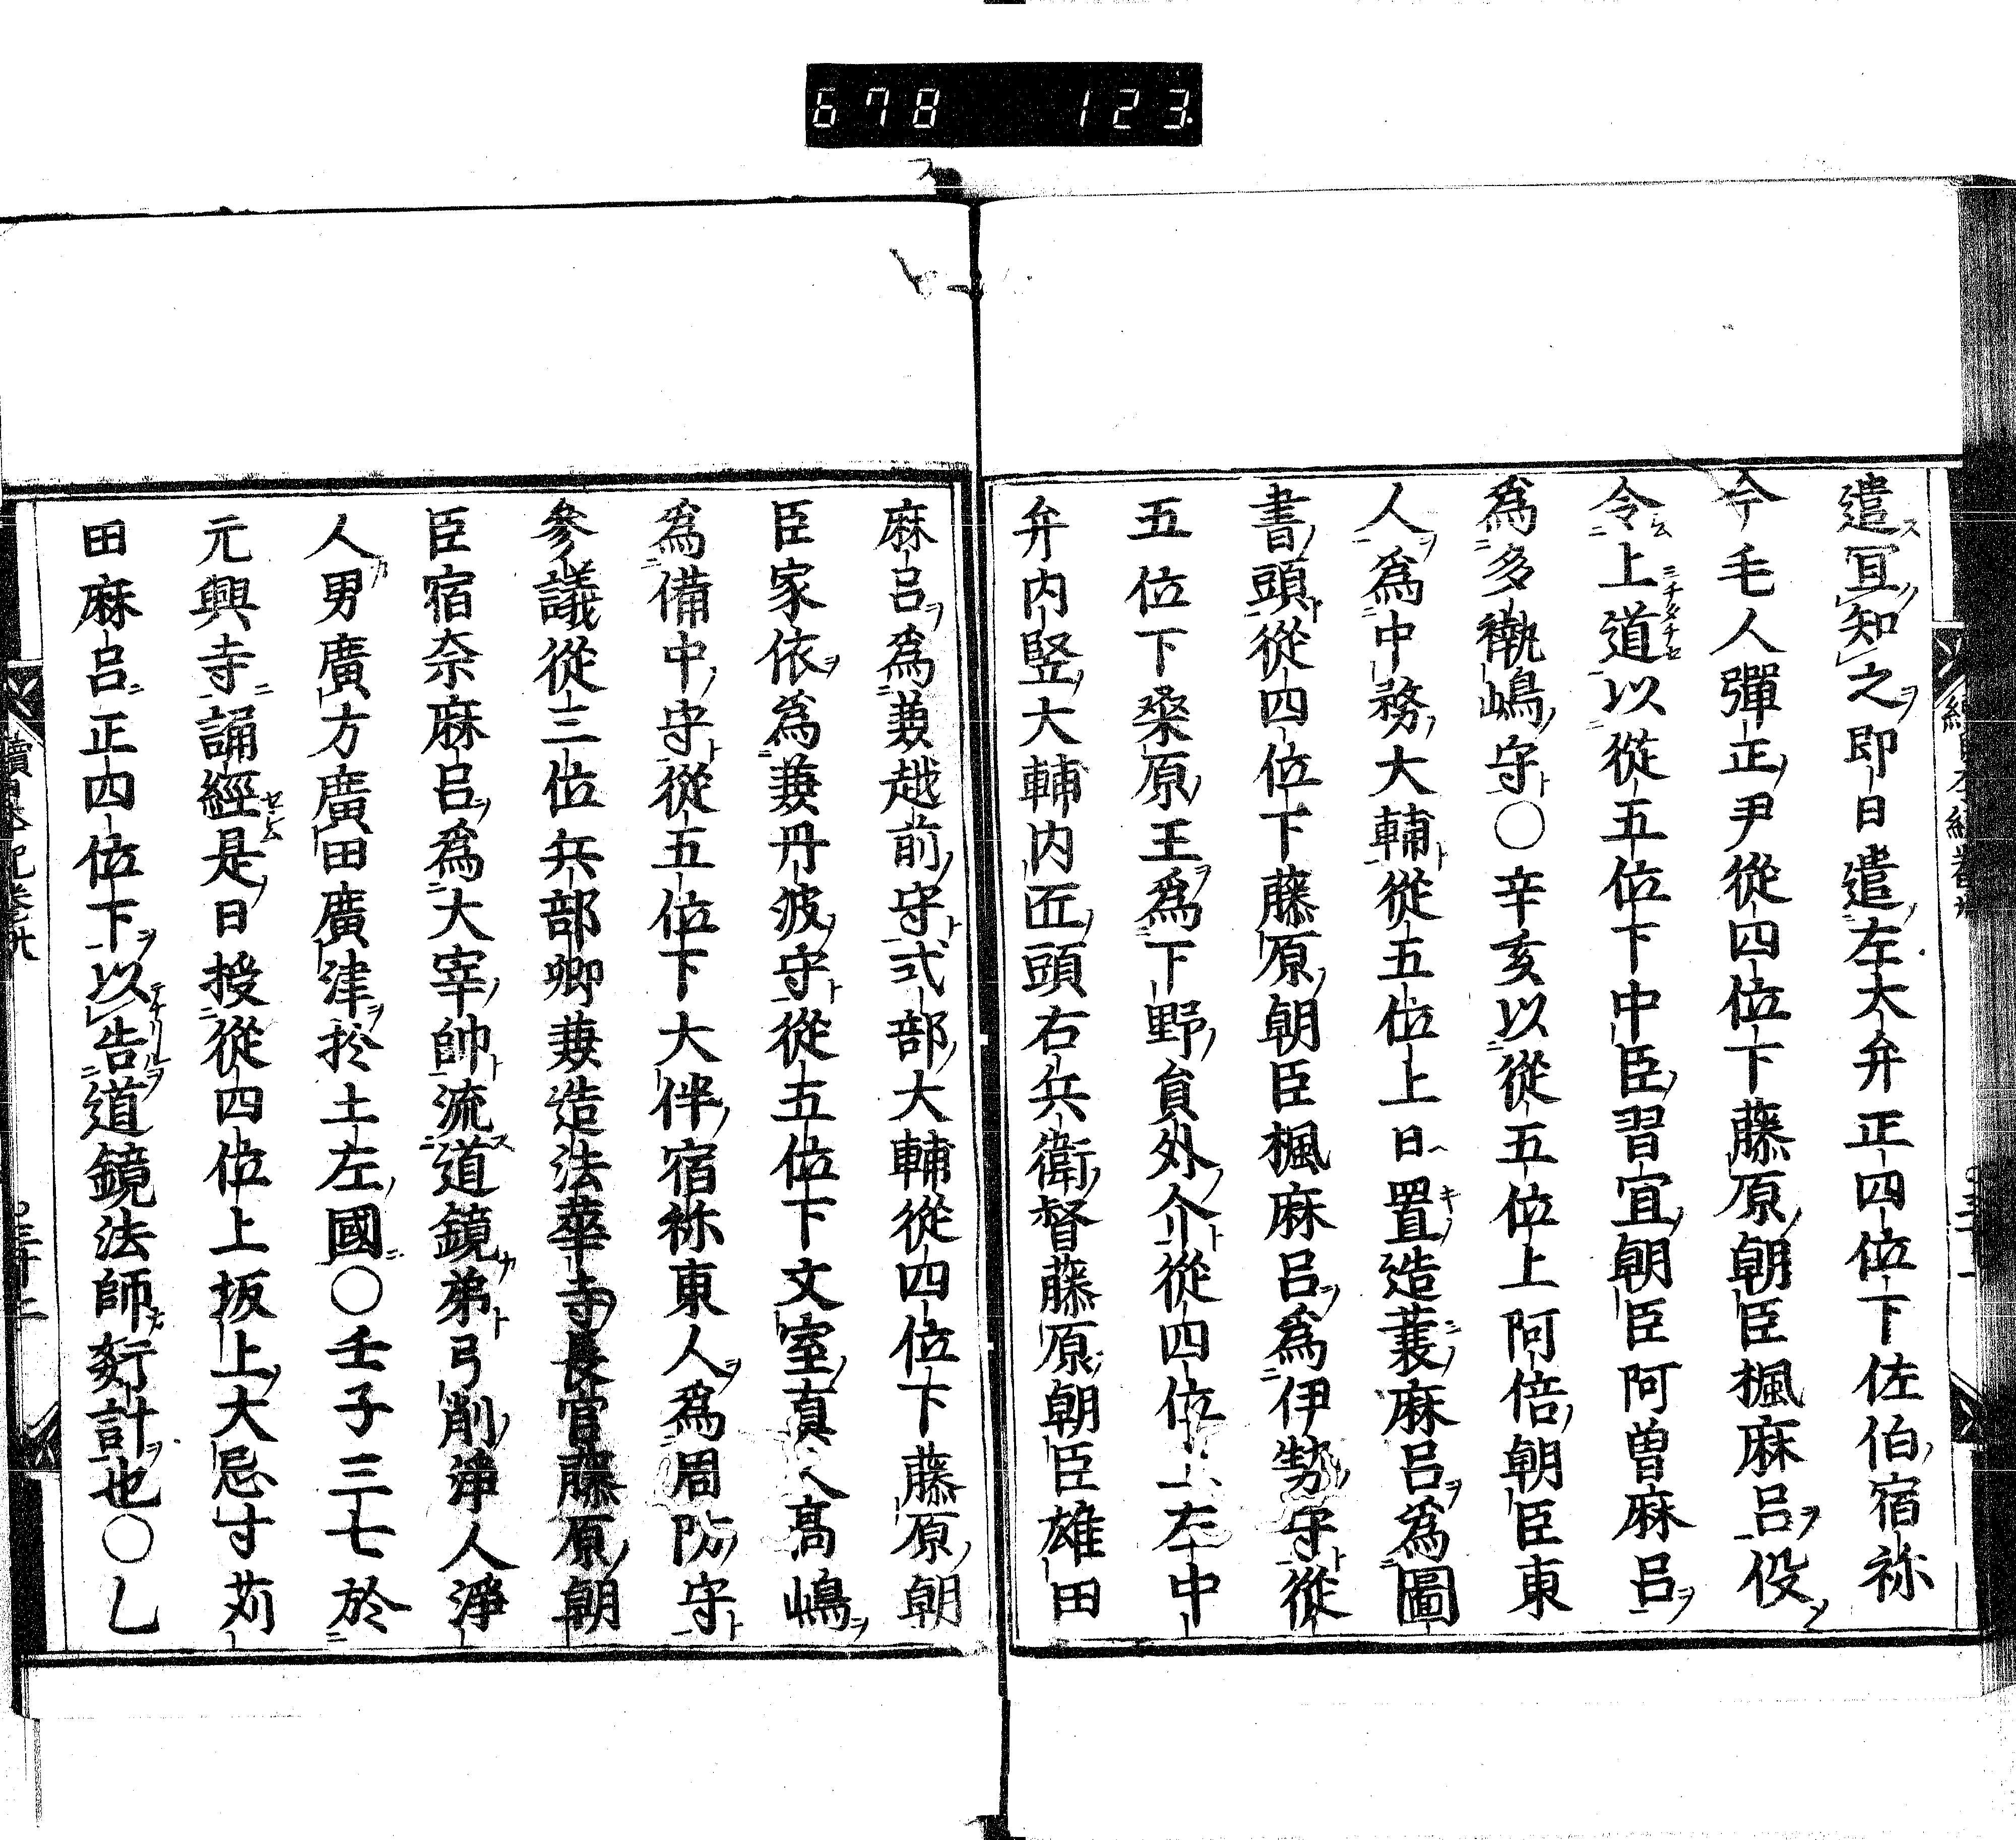 678 123.
遣宣知之即日遣左大弁正四位下佐伯宿祢
今毛人彈正尹從四位下藤原朝臣楓麻呂役
令上道以從五位下中臣習宜朝臣阿曽麻呂
爲多褹嶋守〇辛亥以從五位上阿倍朝臣東
人爲中務大輔從五位上日置造蓑麻呂爲圖
書頭從四位下藤原朝臣楓麻呂爲伊勢守從
五位下桑原王爲下野員外介從四位上左中
弁内竪大輔内匠頭右兵衛督藤原朝臣雄田
麻呂爲兼越前守式部大輔從四位下藤原朝
臣家依爲兼丹波守從五位下文室真人髙嶋
爲備中守從五位下大伴宿祢東人爲周防守
參議從三位兵部卿兼造法華寺長官藤原朝
臣宿奈麻呂爲大宰帥流道鏡弟弓削淨人淨
人男廣方廣田廣津於土左國〇壬子三七於
元興寺誦經是日授從四位上坂上大忌寸苅
田麻呂正四位下以告道鏡法師姧計也〇乙